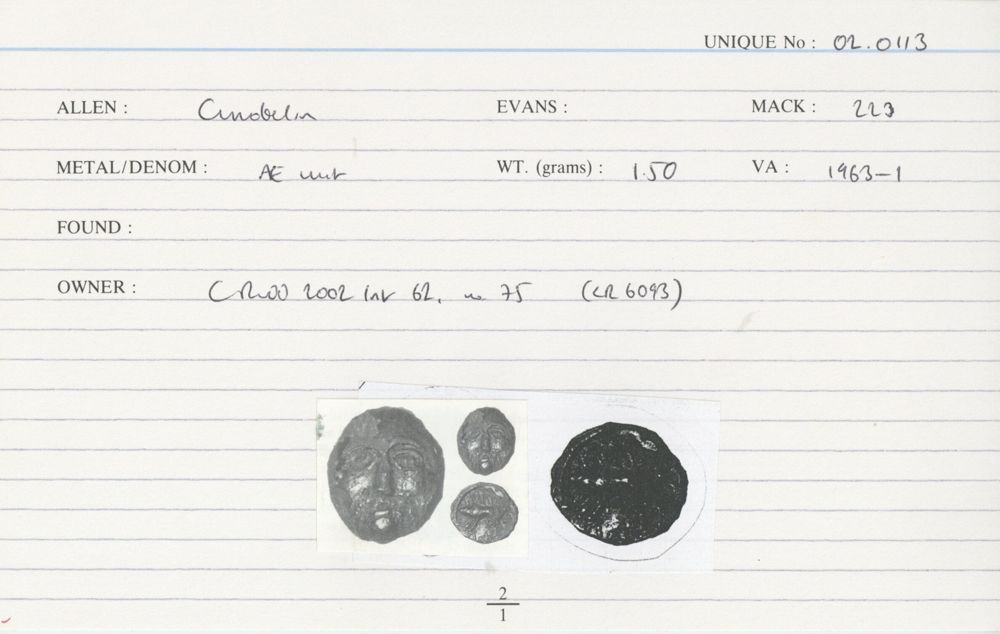 UNIQUE No : 02.0113
ALLEN : Cunobelin EVANS : MACK : 223
METAL/DENOM : AE unit WT. (grams) : 1.50 VA : 1963-1
FOUND :
OWNER : 2002 62, no 75 (CR 6093)
2
1